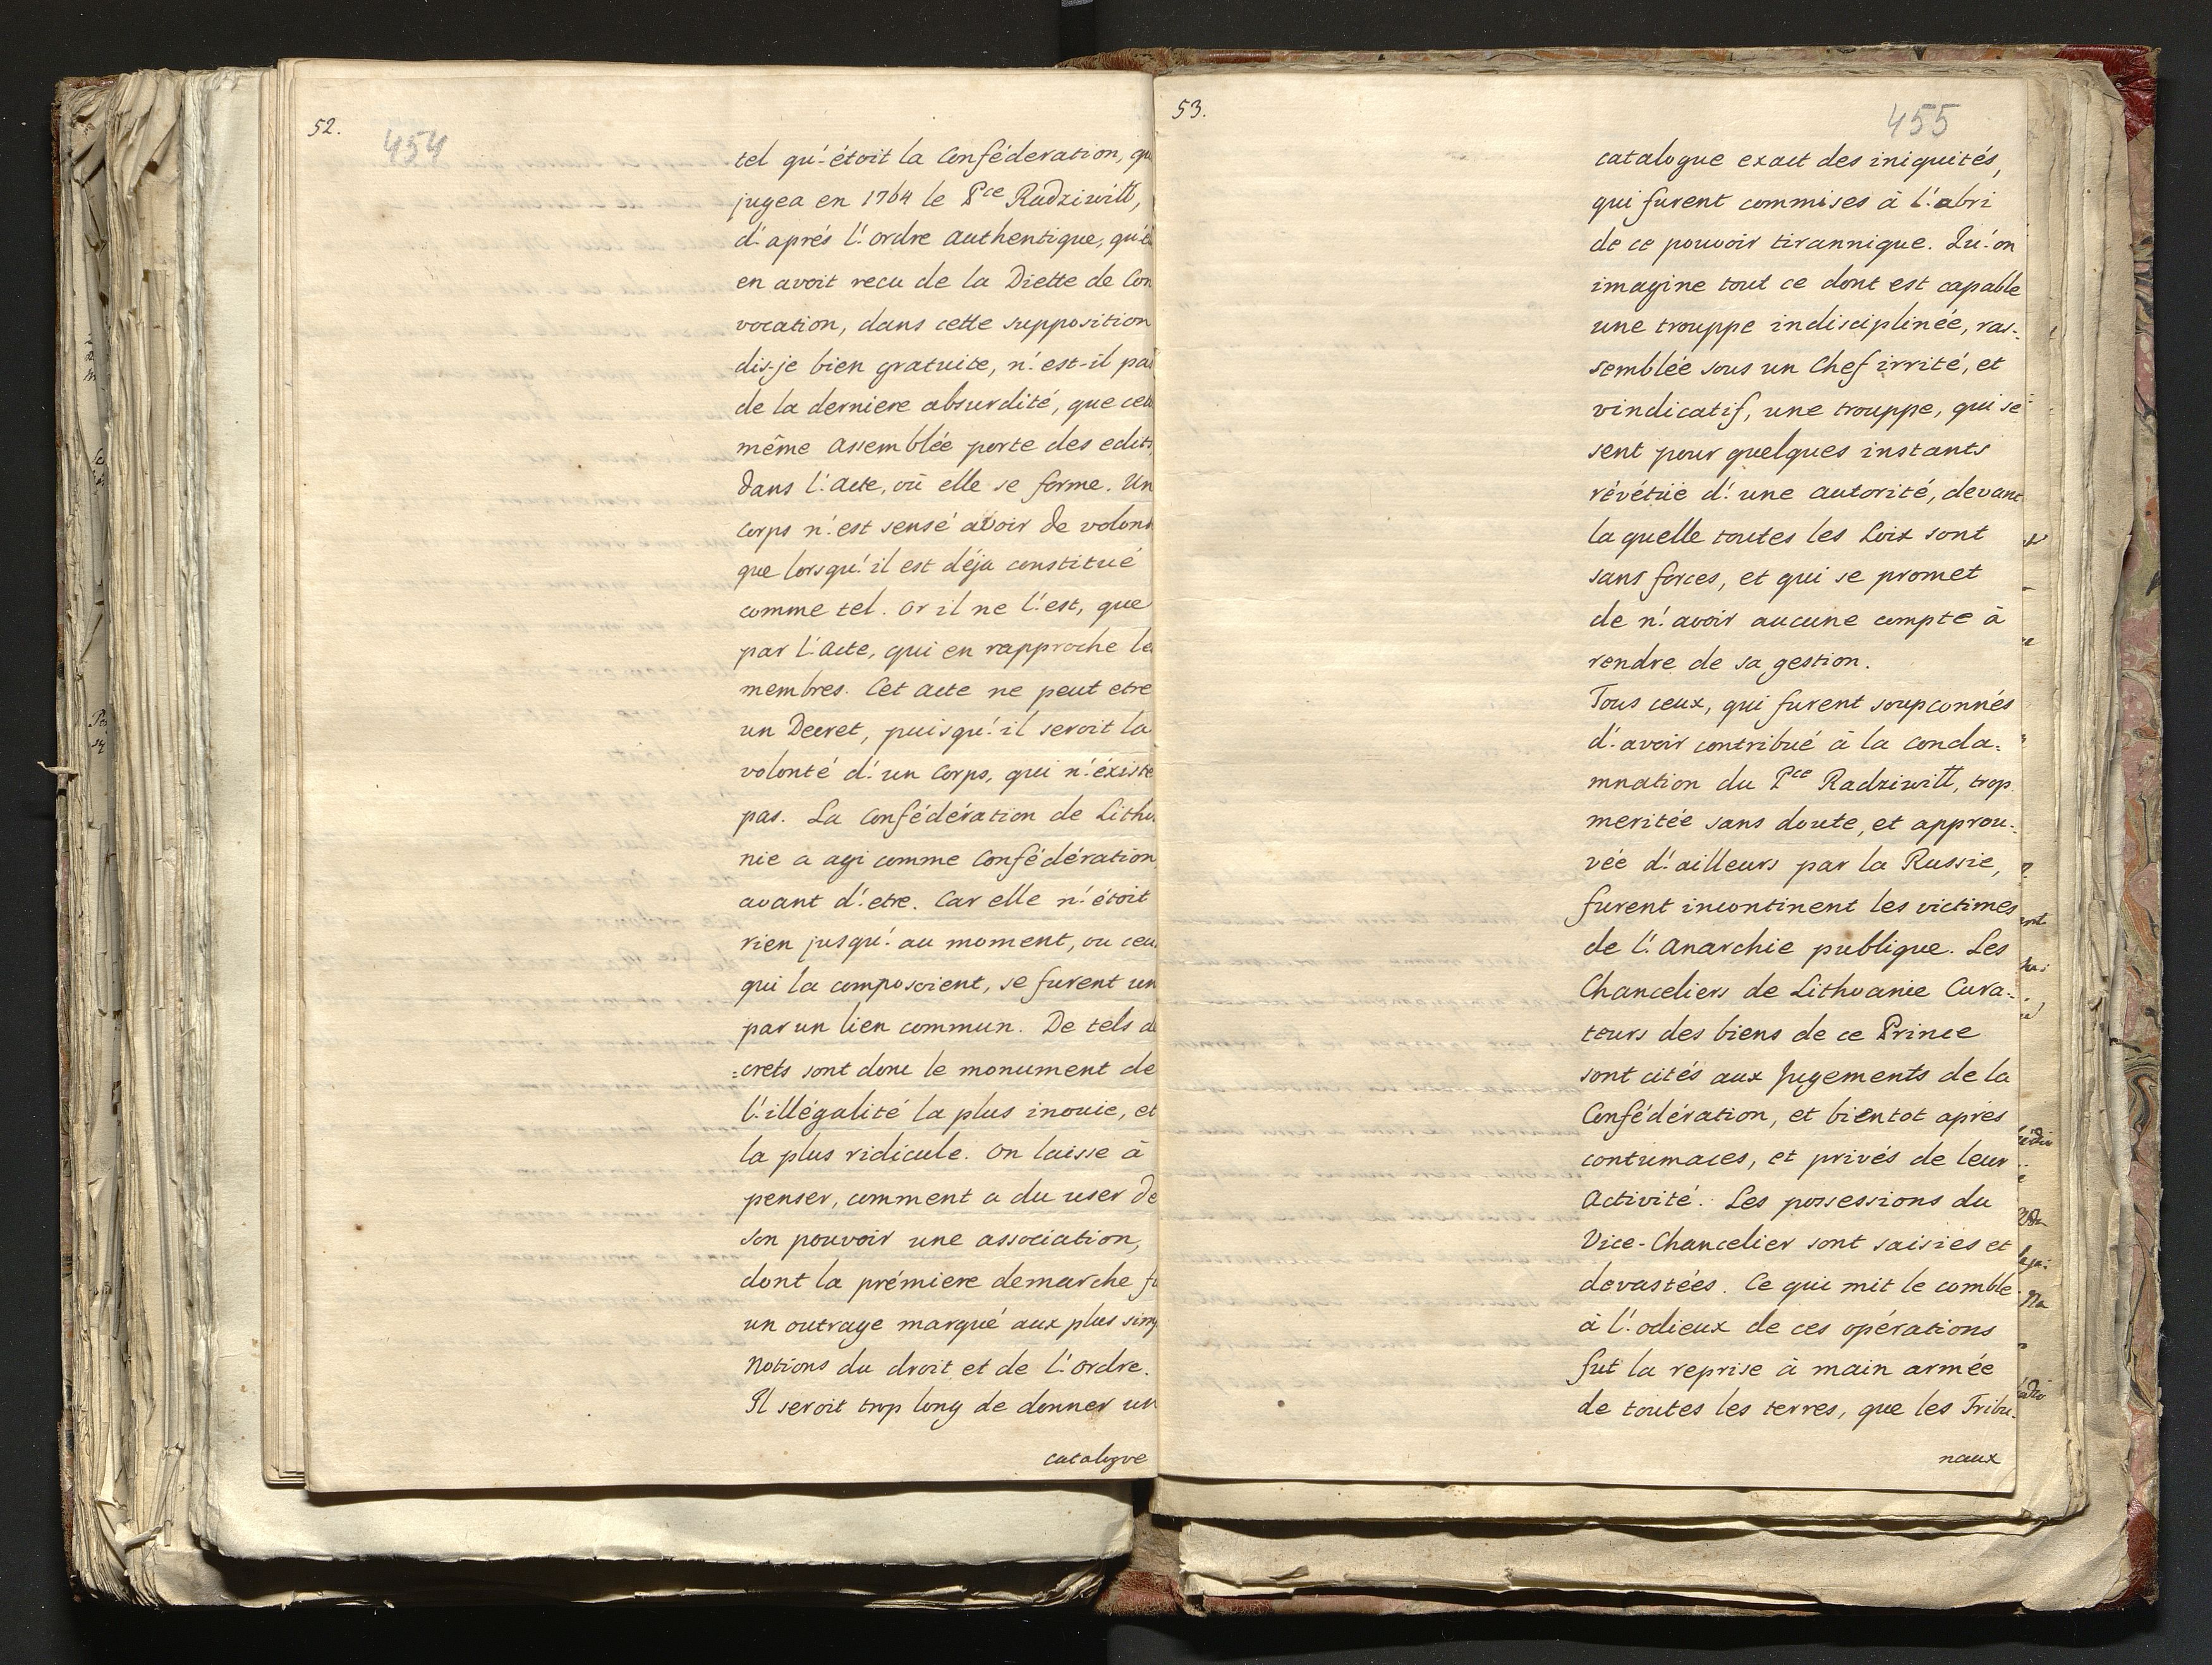 52.
454
tel qu'étoit la Conféderation, qu
jugea en 1764 le Pce Radziwill,
d'aprés l'ordre authentique, qu'é
en avoit recu de la Diette de Con
vocation, dans cette supposition
dis-je bien gratuite, n'est-il pas
de la derniere absurdité, que cet
même Assemblée porte des edits,
dans l'Acte, où elle se forme. Un
Corps n'est sensé avoir de volont
que lorsqu'il est déja constitué
comme tel. Or il ne l'est, que
par l'Acte, qui en rapproche le
membres. Cet acte ne peut etre
un Decret, puisqu'il seroit la
volonté d'un Corps, qui n'éxiste
pas. La Confédération de Lithu
nie a agi comme Confédération
avant d'etre. Car elle n'étoit
rien jusqu'au moment, ou ceu
qui la composoient, se furent un
par un lien commun. De tels d
=crets sont donc le monument de
l'illégalité la plus inouie, et
la plus ridicule. On laisse à
penser, comment a du user de
son pouvoir une association,
dont la prémiere demarche fu
un outrage marqué aux plus simp
Notions du droit et de l'ordre.
Il seroit trop long de donner un
catalogue
53.
455
catalogue exact des iniquités,
qui furent commises à l'abri
de ce pouvoir tirannique. Qu'on
imagine tout ce dont est capable
une trouppe indisciplinée, ras-
semblée sous un Chef irrité, et
vindicatif, une trouppe, qui se
sent pour quelques instants
révétüe d'une autorité, devant
la quelle toutes les Loix sont
sans forces, et qui se promet
de n'avoir aucune compte à
rendre de sa gestion.
Tous ceux, qui furent soupconnés
d'avoir contribué à la conda=
mnation du Pce Radziwill, trop
meritée sans doute, et approu=
vée d'ailleurs par la Russie,
furent incontinent les victimes
de l'Anarchie publique. Les
Chanceliers de Lithuanie Cura=
teurs des biens de ce Prince
sont cités aux Jugements de la
Confédération, et bientot aprés
contumaces, et privés de leur
Activité. Les possessions du
Vice-Chancelier sont saisies et
devastées. Ce qui mit le comble
à l'odieux de ces opérations
fut la reprise à main armée
de toutes les terres, que les Tribu=
naux